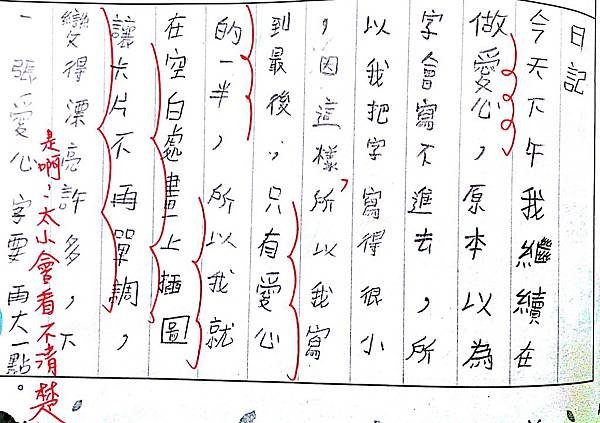 日記
今天下午我繼續在
做愛心，原本以為
字會寫不進去，所
以我把字寫得很小
，因這樣，所以我寫
到最後，只有愛心
的一半，所以我就
在空白處畫上插圖
讓卡片不再單調，
變得漂亮許多，下
一張愛心字要再大一點。
是啊！太小會看不清楚